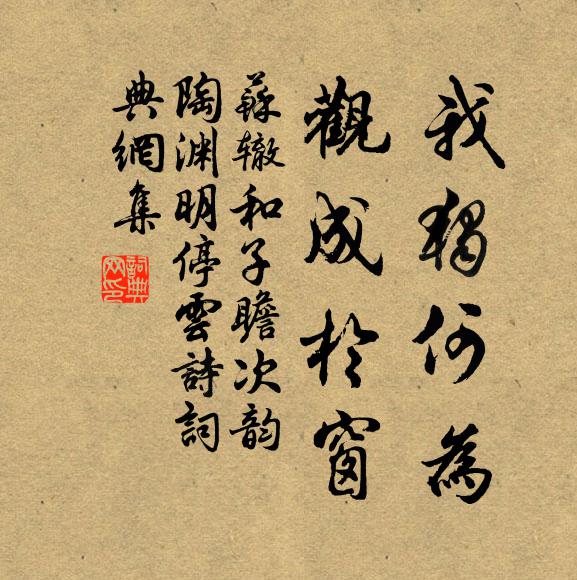 我獨何為
觀成於窗
蘇辙和子瞻次韵
陶渊明停雲詩詞
典網集
詞典
网印